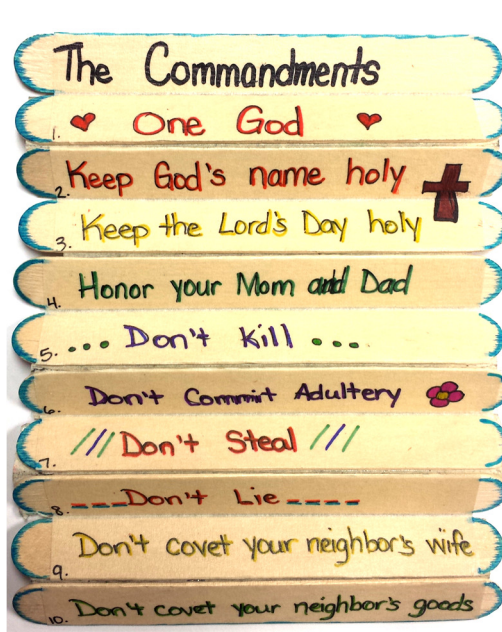 The Commandments
1. One God
2. Keep God's name holy
3. Keep the Lord's Day holy
4. Honor your Mom and Dad
5. ... Don't Kill ...
6. Don't Commit Adultery
7. /// Don't Steal ///
8. ___Don't Lie ____
9. Don't covet your neighbor's wife
10. Don't covet your neighbor's goods